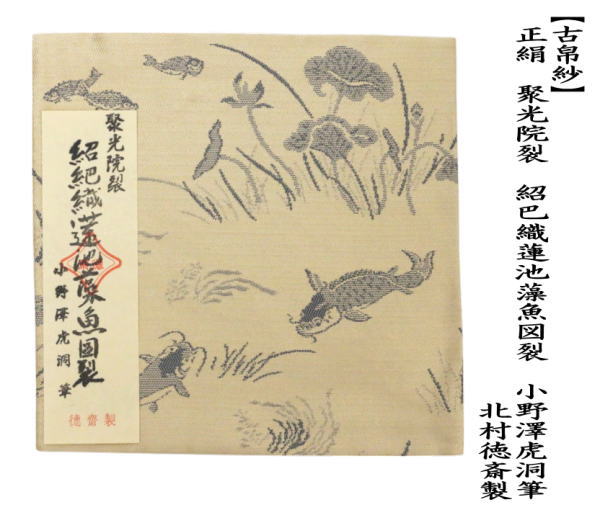 【古帛紗】
正絹　聚光院裂　紹巴織蓮池藻魚図裂　小野澤虎洞筆
北村徳斎製
聚光院裂
紹紦織蓮池藻魚図裂
小野澤虎洞筆
徳齋製